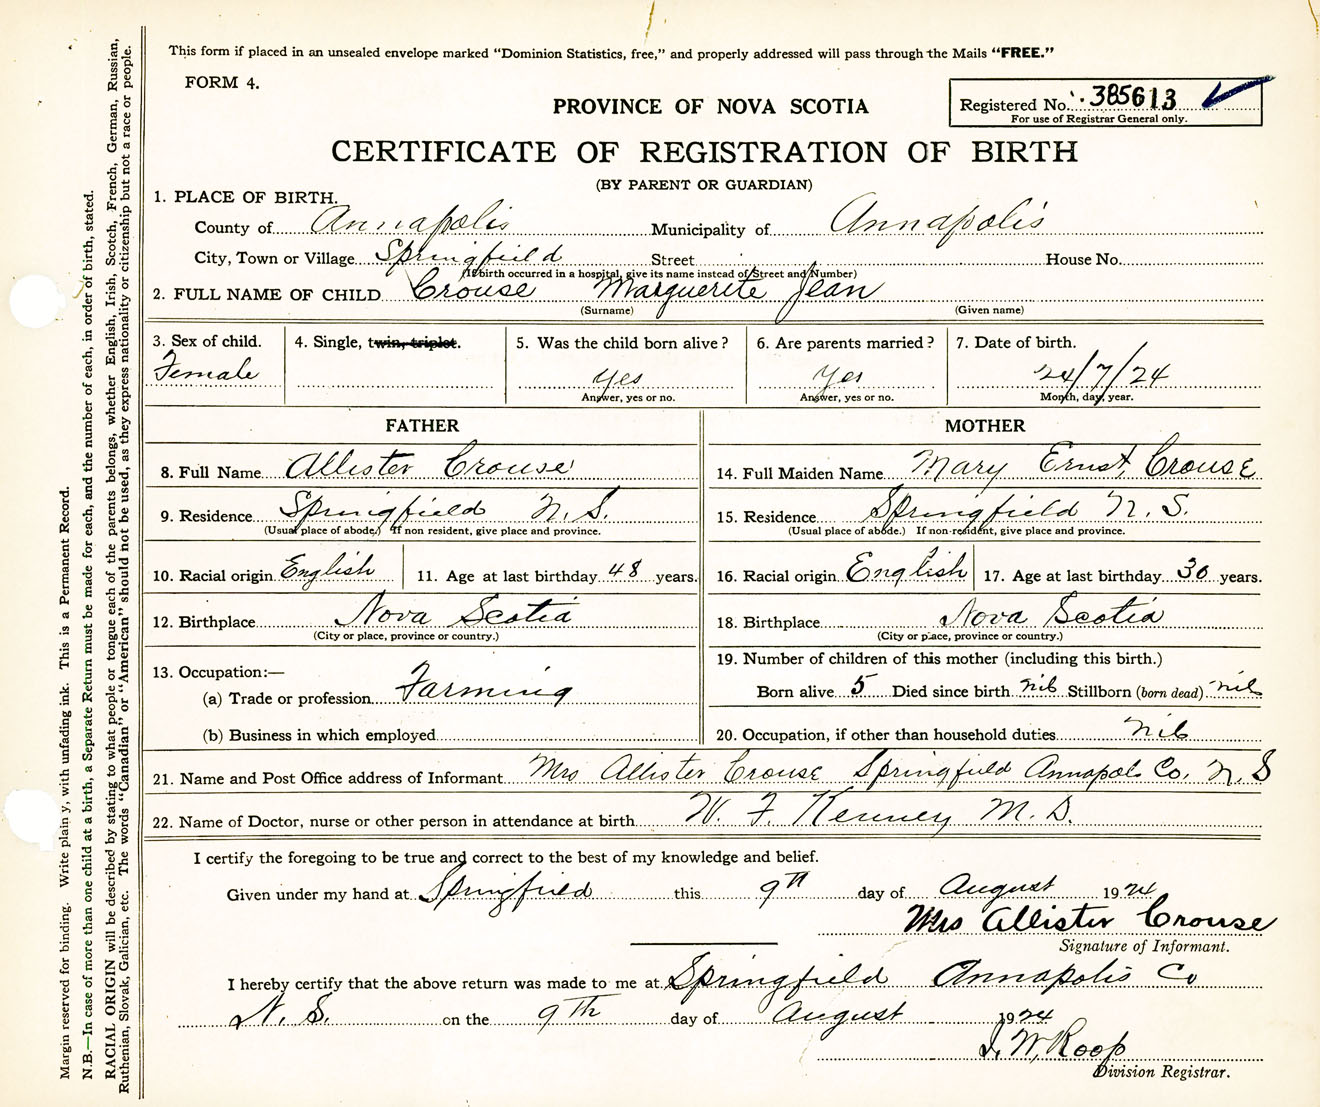 This form if placed in an unsealed envelope marked "Dominion Statistics, free," and properly addressed will pass through the Mails "FREE."
FORM 4.
Registered No. 385613
For use of Registrar General only.
PROVINCE OF NOVA SCOTIA
CERTIFICATE OF REGISTRATION OF BIRTH
(BY PARENT OR GUARDIAN)
1. PLACE OF BIRTH.
County of Annapolis Municipality of Annapolis
City, Town or Village Springfield Street House No.
(If birth occurred in a hospital, give its name instead of Street and Number)
2. FULL NAME OF CHILD Crouse Marguerite Jean
(Surname) (Given name)
3. Sex of child. 4. Single, twin, triplet. 5. Was the child born alive? 6. Are parents married? 7. Date of birth.
Female yes Yes 24/7/24
Answer, yes or no. Answer, yes or no. Month, day, year.
FATHER
8. Full Name Allister Crouse
9. Residence Springfield N.S.
(Usual place of abode.) If non resident, give place and province.
10. Racial origin English 11. Age at last birthday 48 years.
12. Birthplace Nova Scotia
(City or place, province or country.)
13. Occupation:—
(a) Trade or profession Farming
(b) Business in which employed
MOTHER
14. Full Maiden Name Mary Ernst Crouse
15. Residence Springfield N.S.
(Usual place of abode.) If non-resident, give place and province.
16. Racial origin English 17. Age at last birthday 30 years.
18. Birthplace Nova Scotia
(City or place, province or country.)
19. Number of children of this mother (including this birth.)
Born alive 5 Died since birth nil Stillborn (born dead) nil
20. Occupation, if other than household duties nil
21. Name and Post Office address of Informant Mrs Allister Crouse Springfield Annapolis Co. N.S
22. Name of Doctor, nurse or other person in attendance at birth W. F. Kenney M.D.
I certify the foregoing to be true and correct to the best of my knowledge and belief.
Given under my hand at Springfield this 9th day of August 1924
Mrs Allister Crouse
Signature of Informant.
I hereby certify that the above return was made to me at Springfield Annapolis Co
N.S. on the 9th day of August 1924
J. W. Roop
Division Registrar.
Margin reserved for binding. Write plainly, with unfading ink. This is a Permanent Record.
N.B.—In case of more than one child at a birth, a Separate Return must be made for each, and the number of each, in order of birth, stated.
RACIAL ORIGIN will be described by stating to what people or tongue each of the parents belongs, whether English, Irish, Scotch, French, German, Russian,
Ruthenian, Slovak, Galician, etc. The words "Canadian" or "American" should not be used, as they express nationality or citizenship but not a race or people.